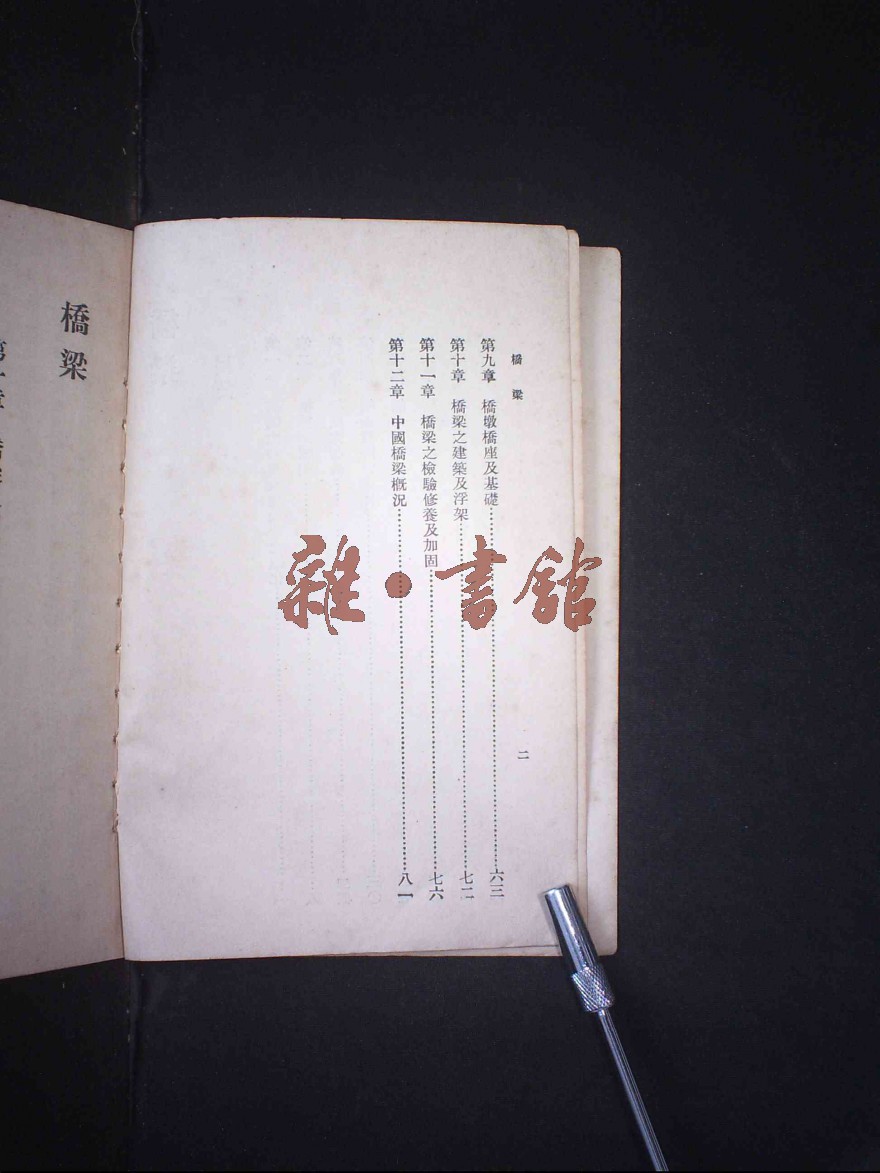 橋梁
二
第九章　橋墩橋座及基礎……六三
第十章　橋梁之建築及浮架……七二
第十一章　橋梁之檢驗修養及加固……七六
第十二章　中國橋梁概況……八一
雜・書館
橋梁